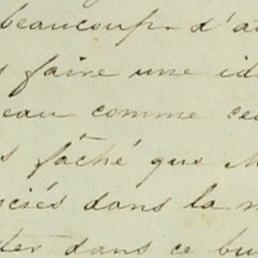 beaucoup d'a
s faire une id
eau comme ce
s fâché que M
ciés dans la n
ter dans ce bu